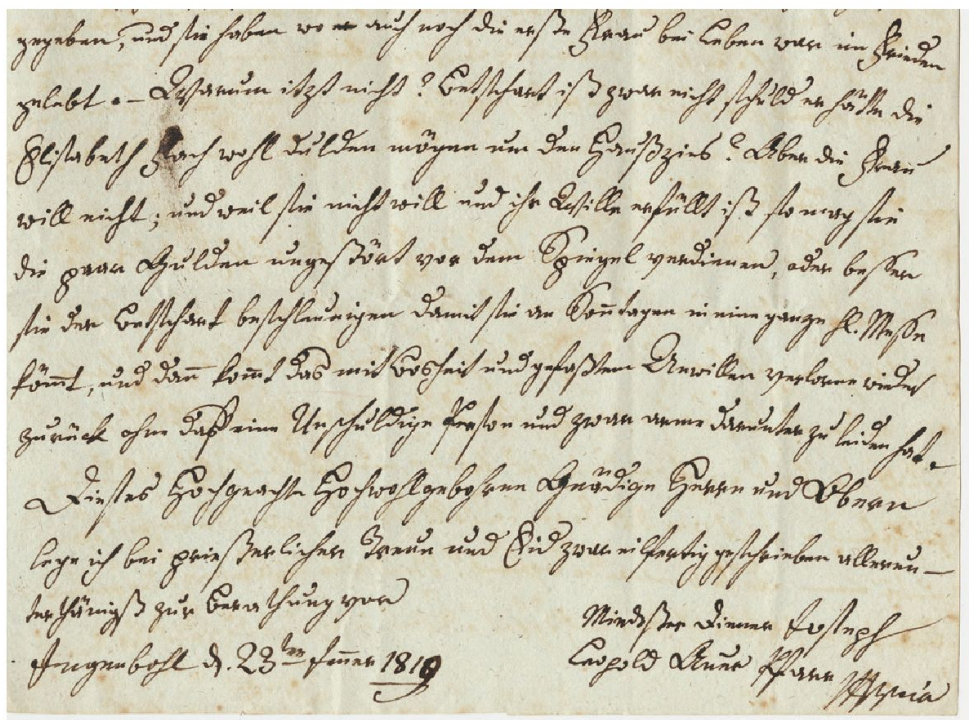 gegeben, und sie haben wo er auch noch die erste Frau bei Leben war im Frieden
gelebt. – Warum itzt nicht? Betschart ist zwar nicht schuld er hätte die
Elisabeth Fach wohl dulden mögen um den Haußzins? Aber die Frau
will nicht; und weil sie nicht will und ihr Wille erfüllt ist so mag sie
die paar Gulden ungestört vor dem Spiegel verdienen, oder besser
sie der Betschart beschleunigen damit sie an Sonntagen in eine ganze hl. Messe
kömmt, und dann kommt das mit Bosheit und gefaßtem Unwillen verlorne wieder
zurück ohne daß eine Unschuldige Person und zwar arme darunter zu leiden hat.
Dieses Hochgeachte Hochwohlgebohrne Gnädige Herren und Obern
lege ich bei priesterlicher Treue und Eid zwar eilfertig geschrieben allerun–
terthänigst zur Berathung vor
Mindester Diener Joseph
Ingenbohl d. 23ten Jenner 1819
Leopold Auer Pfarr